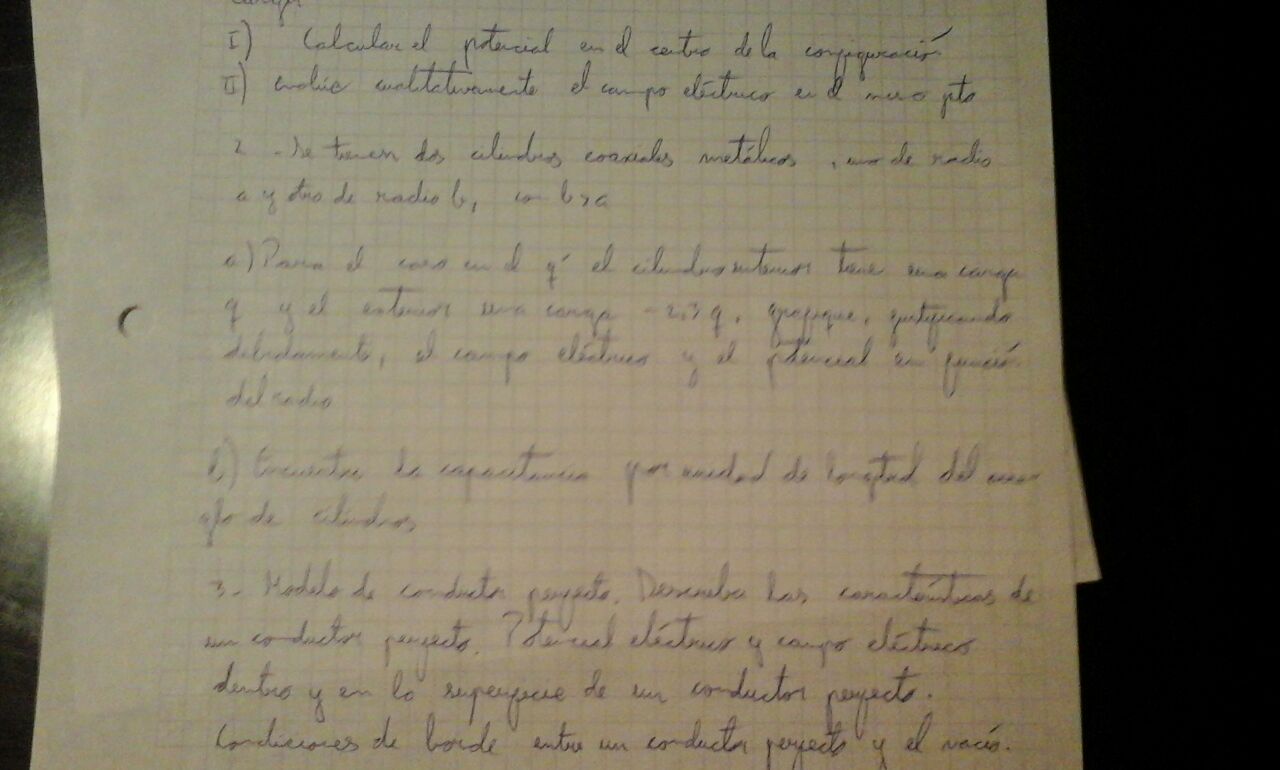 I) Calcular el potencial en el centro de la configuración
II) analice cualitativamente el campo eléctrico en el mismo pto
2.- Se tienen dos cilindros coaxiales metálicos, uno de radio
a y otro de radio b, con b>a
a) Para el caso en el q' el cilindro interior tiene una carga
q y el exterior una carga -2,3q, grafique, justificando
debidamente, el campo eléctrico y el potencial en función
del radio
b) Encuentre la capacitancia por unidad de longitud del
de cilindros
3.- Modelo de conductor perfecto. Describa las características de
un conductor perfecto. Potencial eléctrico y campo eléctrico
dentro y en la superficie de un conductor perfecto.
Condiciones de borde entre un conductor perfecto y el vacío.